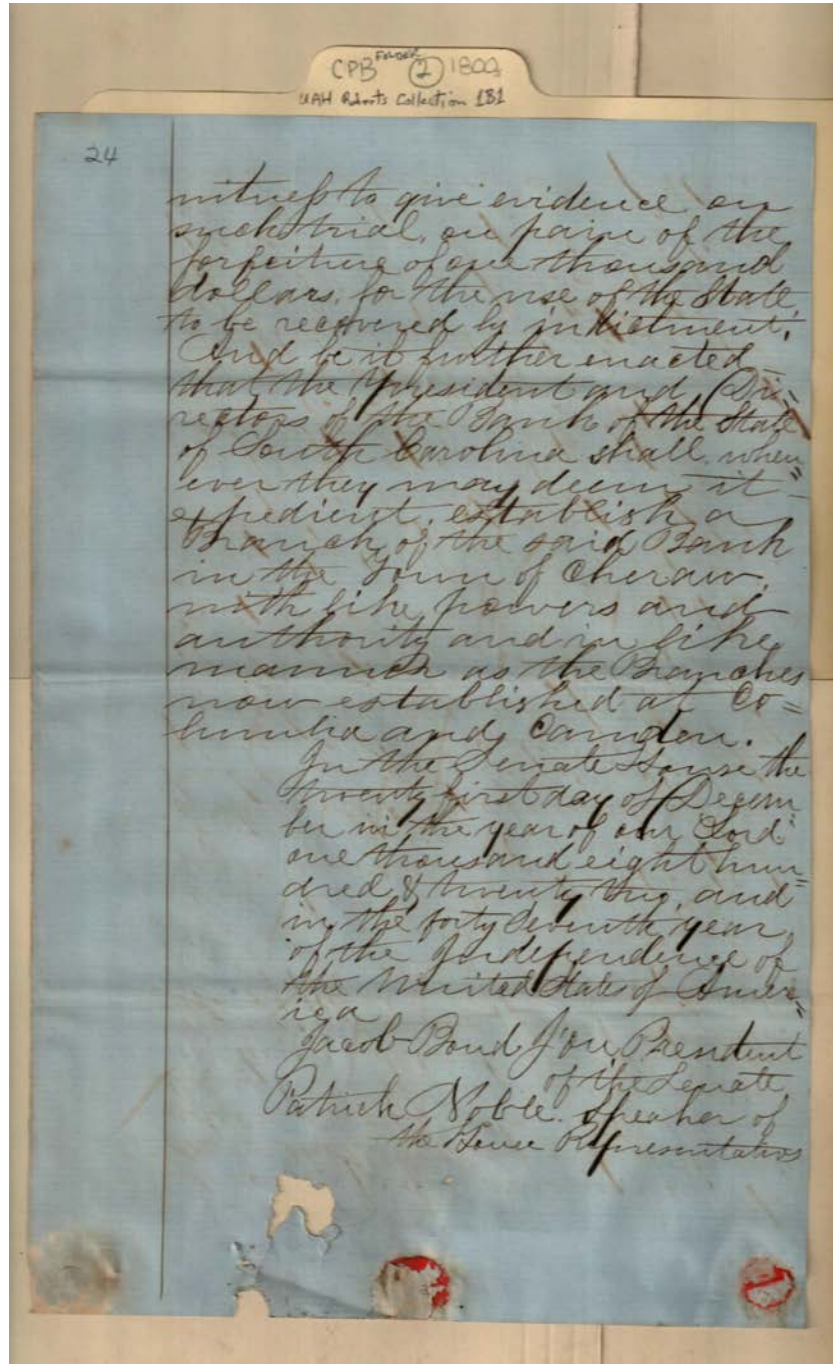 CPB Folder (2) 180
UAH Roberts Collection 1B1
24
witness to give evidence on
such trial, on paine of the
forfeiture of one thousand
dollars, for the use of the State
to be recovered by indictment.
And be it further enacted =
that the President and Di=
rectors of the Bank of the State
of South Carolina shall when=
ever they may deem it
expedient, establish a
Branch of the said Bank
in the Town of Cheraw,
with like powers and
authority and in like
manner as the Branches
now established at Co=
lumbia and Camden.
In the Senate House the
twenty first day of Decem
ber in the year of our Lord
one thousand eight hun=
dred & twenty two, and
in the forty seventh year
of the Independence of
the United States of Amer=
ica
Jacob Bond I'on President
of the Senate
Patrick Noble. Speaker of
the House Representatives